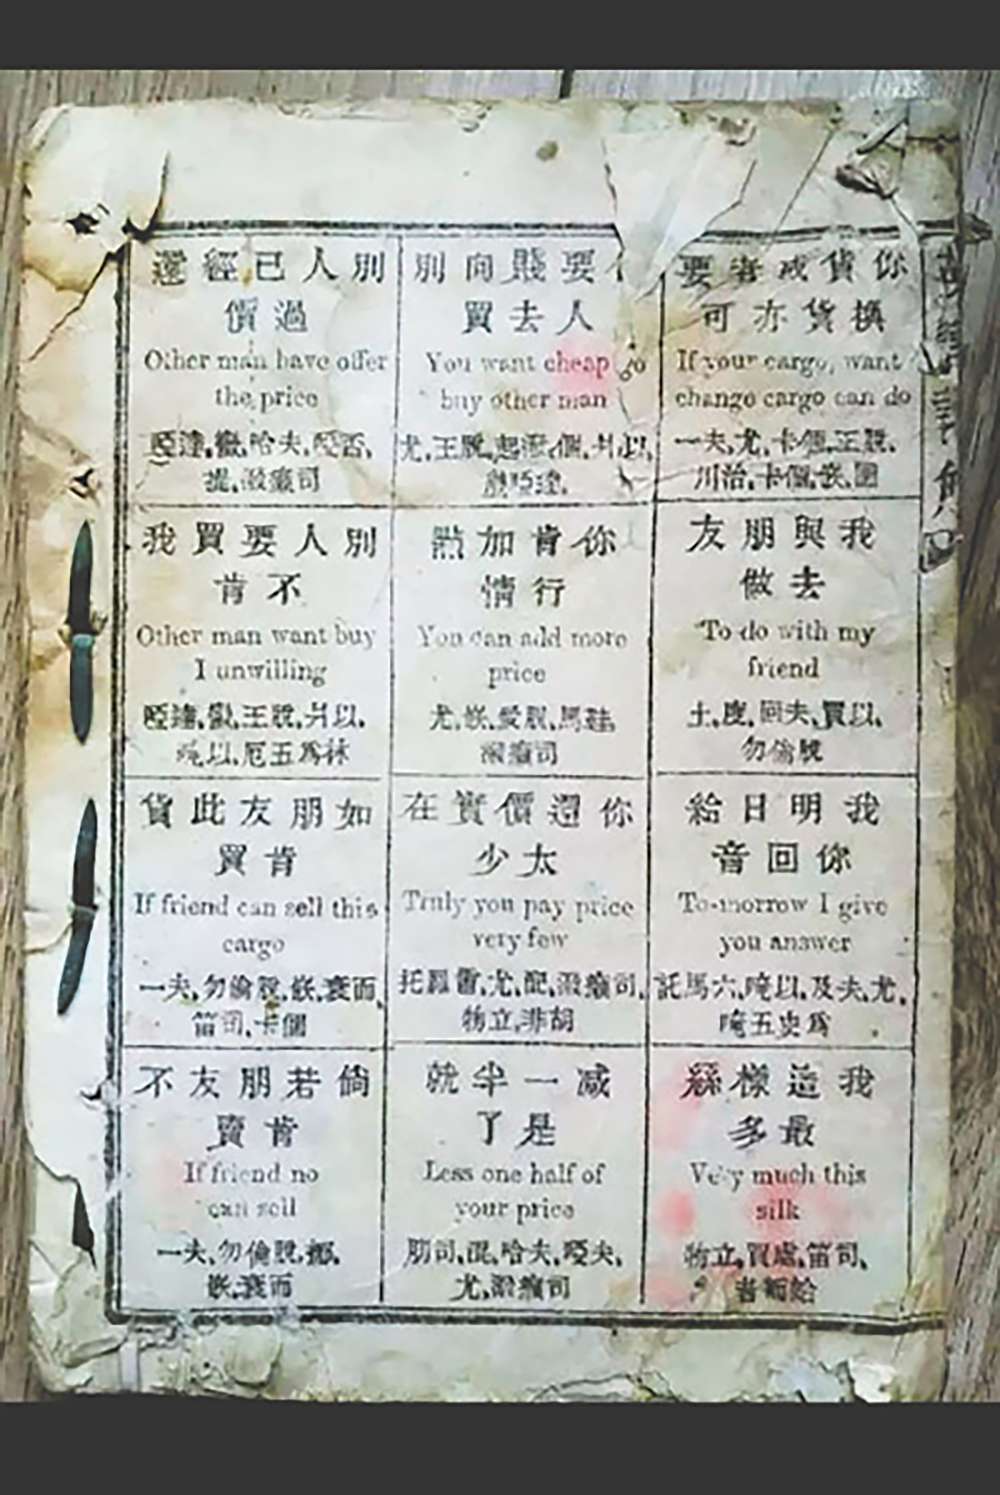 你貨或者要
換貨亦可
If your cargo, want
change cargo can do
一夫,尤,卡個,王脫,
川治,卡個
我與朋友
去做
To do with my
friend
土,度,回夫,買以,
勿倫脫
我明日給
你回音
To-morrow I give
you answer
託馬六,唵以,及夫,尤,
唵五史為
我這樣絲
最多
Very much this
silk
物立,買處,笛司,
要賤向別
人去買
You want cheap go
buy other man
尤,王脫,起潑,個,爿以,
你肯加點
行情
You can add more
price
尤,嵌,愛脫,馬
潑癩司
你還價實在
太少
Truly you pay price
very few
托羅雷,尤,配,潑癩司,
物立,非胡
減一半就
是了
Less one half of
your price
肋司,混,哈夫,啞夫,
尤,潑癩司
別人已經還
過價
Other man have offer
the price
啞達,蠻,哈夫,啞否,
提,潑癩司
別人要買我
不肯
Other man want buy
I unwilling
啞達,蠻,王脫,爿以,
以,厄五為林
如朋友此貨
肯買
If friend can sell this
cargo
一夫,勿倫脫,嵌,衰而,
笛司,卡個
倘若朋友不
肯賣
If friend no
can sell
一夫,勿倫脫,挪,
嵌,衰而